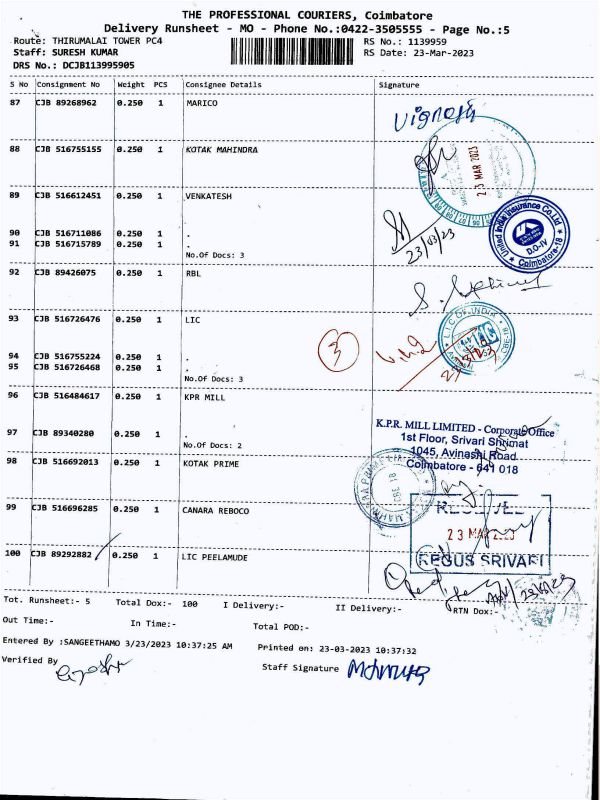 THE PROFESSIONAL COURIERS, Coimbatore
Delivery Runsheet - MO - Phone No.:0422-3505555 - Page No.:5
Route: THIRUMALAI TOWER PC4 RS No.: 1139959
Staff: SURESH KUMAR RS Date: 23-Mar-2023
DRS No.: DCJB113995905
S No Consignment No Weight PCS Consignee Details Signature
87 CJB 89268962 0.250 1 MARICO
Vignesh
88 CJB 516755155 0.250 1 KOTAK MAHINDRA
23 MAR 2023
89 CJB 516612451 0.250 1 VENKATESH
United India Insurance Co.Ltd
D.O-IV
Coimbatore-18
23/03/23
90 CJB 516711086 0.250 1 .
91 CJB 516715789 0.250 1 .
No.Of Docs: 3
92 CJB 89426075 0.250 1 RBL
93 CJB 516726476 0.250 1 LIC
L.I.C OF INDIA
3
94 CJB 516755224 0.250 1 .
95 CJB 516726468 0.250 1 .
No.Of Docs: 3
96 CJB 516484617 0.250 1 KPR MILL
K.P.R. MILL LIMITED - Corporate Office
1st Floor, Srivari Shrimat
1045, Avinashi Road
Coimbatore - 641 018
97 CJB 89340280 0.250 1 .
No.Of Docs: 2
98 CJB 516692013 0.250 1 KOTAK PRIME
99 CJB 516696285 0.250 1 CANARA REBOCO
23 MAR 2023
REGUS SRIVARI
100 CJB 89292882 0.250 1 LIC PEELAMUDE
Tot. Runsheet:- 5 Total Dox:- 100 I Delivery:- II Delivery:- RTN Dox:-
Out Time:- In Time:- Total POD:-
Entered By :SANGEETHAMO 3/23/2023 10:37:25 AM Printed on: 23-03-2023 10:37:32
Verified By Staff Signature